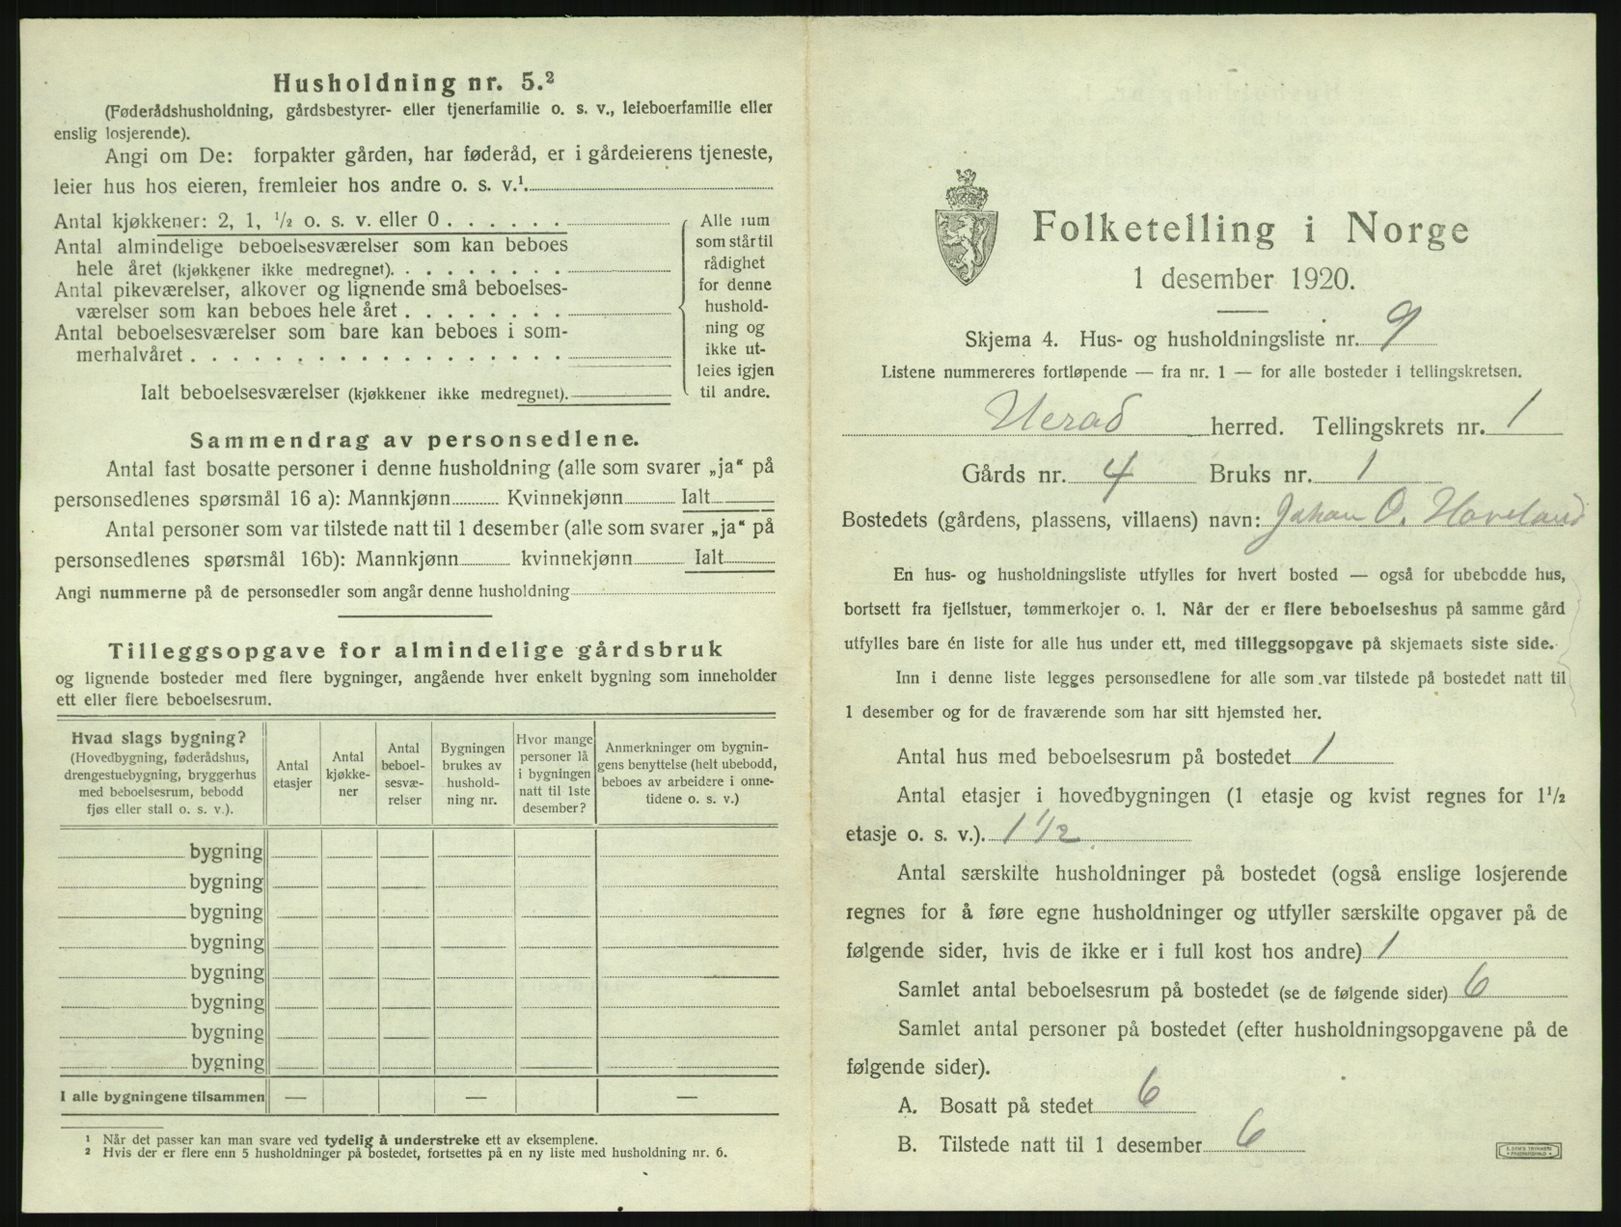 Husholdning nr. 5.²
(Føderådshusholdning, gårdsbestyrer- eller tjenerfamilie o. s. v., leieboerfamilie eller
enslig losjerende).
Angi om De: forpakter gården, har føderåd, er i gårdeierens tjeneste,
leier hus hos eieren, fremleier hos andre o. s. v.¹.
Antal kjøkkener: 2, 1, ½ o. s. v. eller 0
Antal almindelige beboelsesværelser som kan beboes
hele året (kjøkkener ikke medregnet).
Antal pikeværelser, alkover og lignende små beboelses-
værelser som kan beboes hele året
Antal beboelsesværelser som bare kan beboes i som-
merhalvåret
Ialt beboelsesværelser (kjøkkener ikke medregnet).
Alle rum
som står til
rådighet
for denne
hushold-
ning og
ikke ut-
leies igjen
til andre.
Sammendrag av personsedlene.
Antal fast bosatte personer i denne husholdning (alle som svarer „ja“ på
personsedlenes spørsmål 16 a): Mannkjønn Kvinnekjønn Ialt
Antal personer som var tilstede natt til 1 desember (alle som svarer „ja“ på
personsedlenes spørsmål 16b): Mannkjønn kvinnekjønn Ialt
Angi nummerne på de personsedler som angår denne husholdning
Tilleggsopgave for almindelige gårdsbruk
og lignende bosteder med flere bygninger, angående hver enkelt bygning som inneholder
ett eller flere beboelsesrum.
Hvad slags bygning?
(Hovedbygning, føderådshus,
drengestuebygning, bryggerhus
med beboelsesrum, bebodd
fjøs eller stall o. s. v.).
Antal
etasjer
Antal
kjøkke-
ner
Antal
beboel-
sesvæ-
relser
Bygningen
brukes av
hushold-
ning nr.
Hvor mange
personer lå
i bygningen
natt til 1ste
desember?
Anmerkninger om bygnin-
gens benyttelse (helt ubebodd,
beboes av arbeidere i onne-
tidene o. s. v.)
bygning
bygning
bygning
bygning
bygning
bygning
bygning
bygning
I alle bygningene tilsammen — — —
¹ Når det passer kan man svare ved tydelig å understreke ett av eksemplene.
² Hvis der er flere enn 5 husholdninger på bostedet, fortsettes på en ny liste med husholdning nr. 6.
Folketelling i Norge
1 desember 1920.
Skjema 4. Hus- og husholdningsliste nr. 9
Listene nummereres fortløpende — fra nr. 1 — for alle bosteder i tellingskretsen.
Herad herred. Tellingskrets nr. 1
Gårds nr. 4 Bruks nr. 1
Bostedets (gårdens, plassens, villaens) navn: Johan O. Hoveland
En hus- og husholdningsliste utfylles for hvert bosted — også for ubebodde hus,
bortsett fra fjellstuer, tømmerkojer o. l. Når der er flere beboelseshus på samme gård
utfylles bare én liste for alle hus under ett, med tilleggsopgave på skjemaets siste side.
Inn i denne liste legges personsedlene for alle som var tilstede på bostedet natt til
1 desember og for de fraværende som har sitt hjemsted her.
Antal hus med beboelsesrum på bostedet 1
Antal etasjer i hovedbygningen (1 etasje og kvist regnes for 1½
etasje o. s. v.). 1 1/2
Antal særskilte husholdninger på bostedet (også enslige losjerende
regnes for å føre egne husholdninger og utfyller særskilte opgaver på de
følgende sider, hvis de ikke er i full kost hos andre) 1
Samlet antal beboelsesrum på bostedet (se de følgende sider) 6
Samlet antal personer på bostedet (efter husholdningsopgavene på de
følgende sider).
A. Bosatt på stedet 6
B. Tilstede natt til 1 desember 6